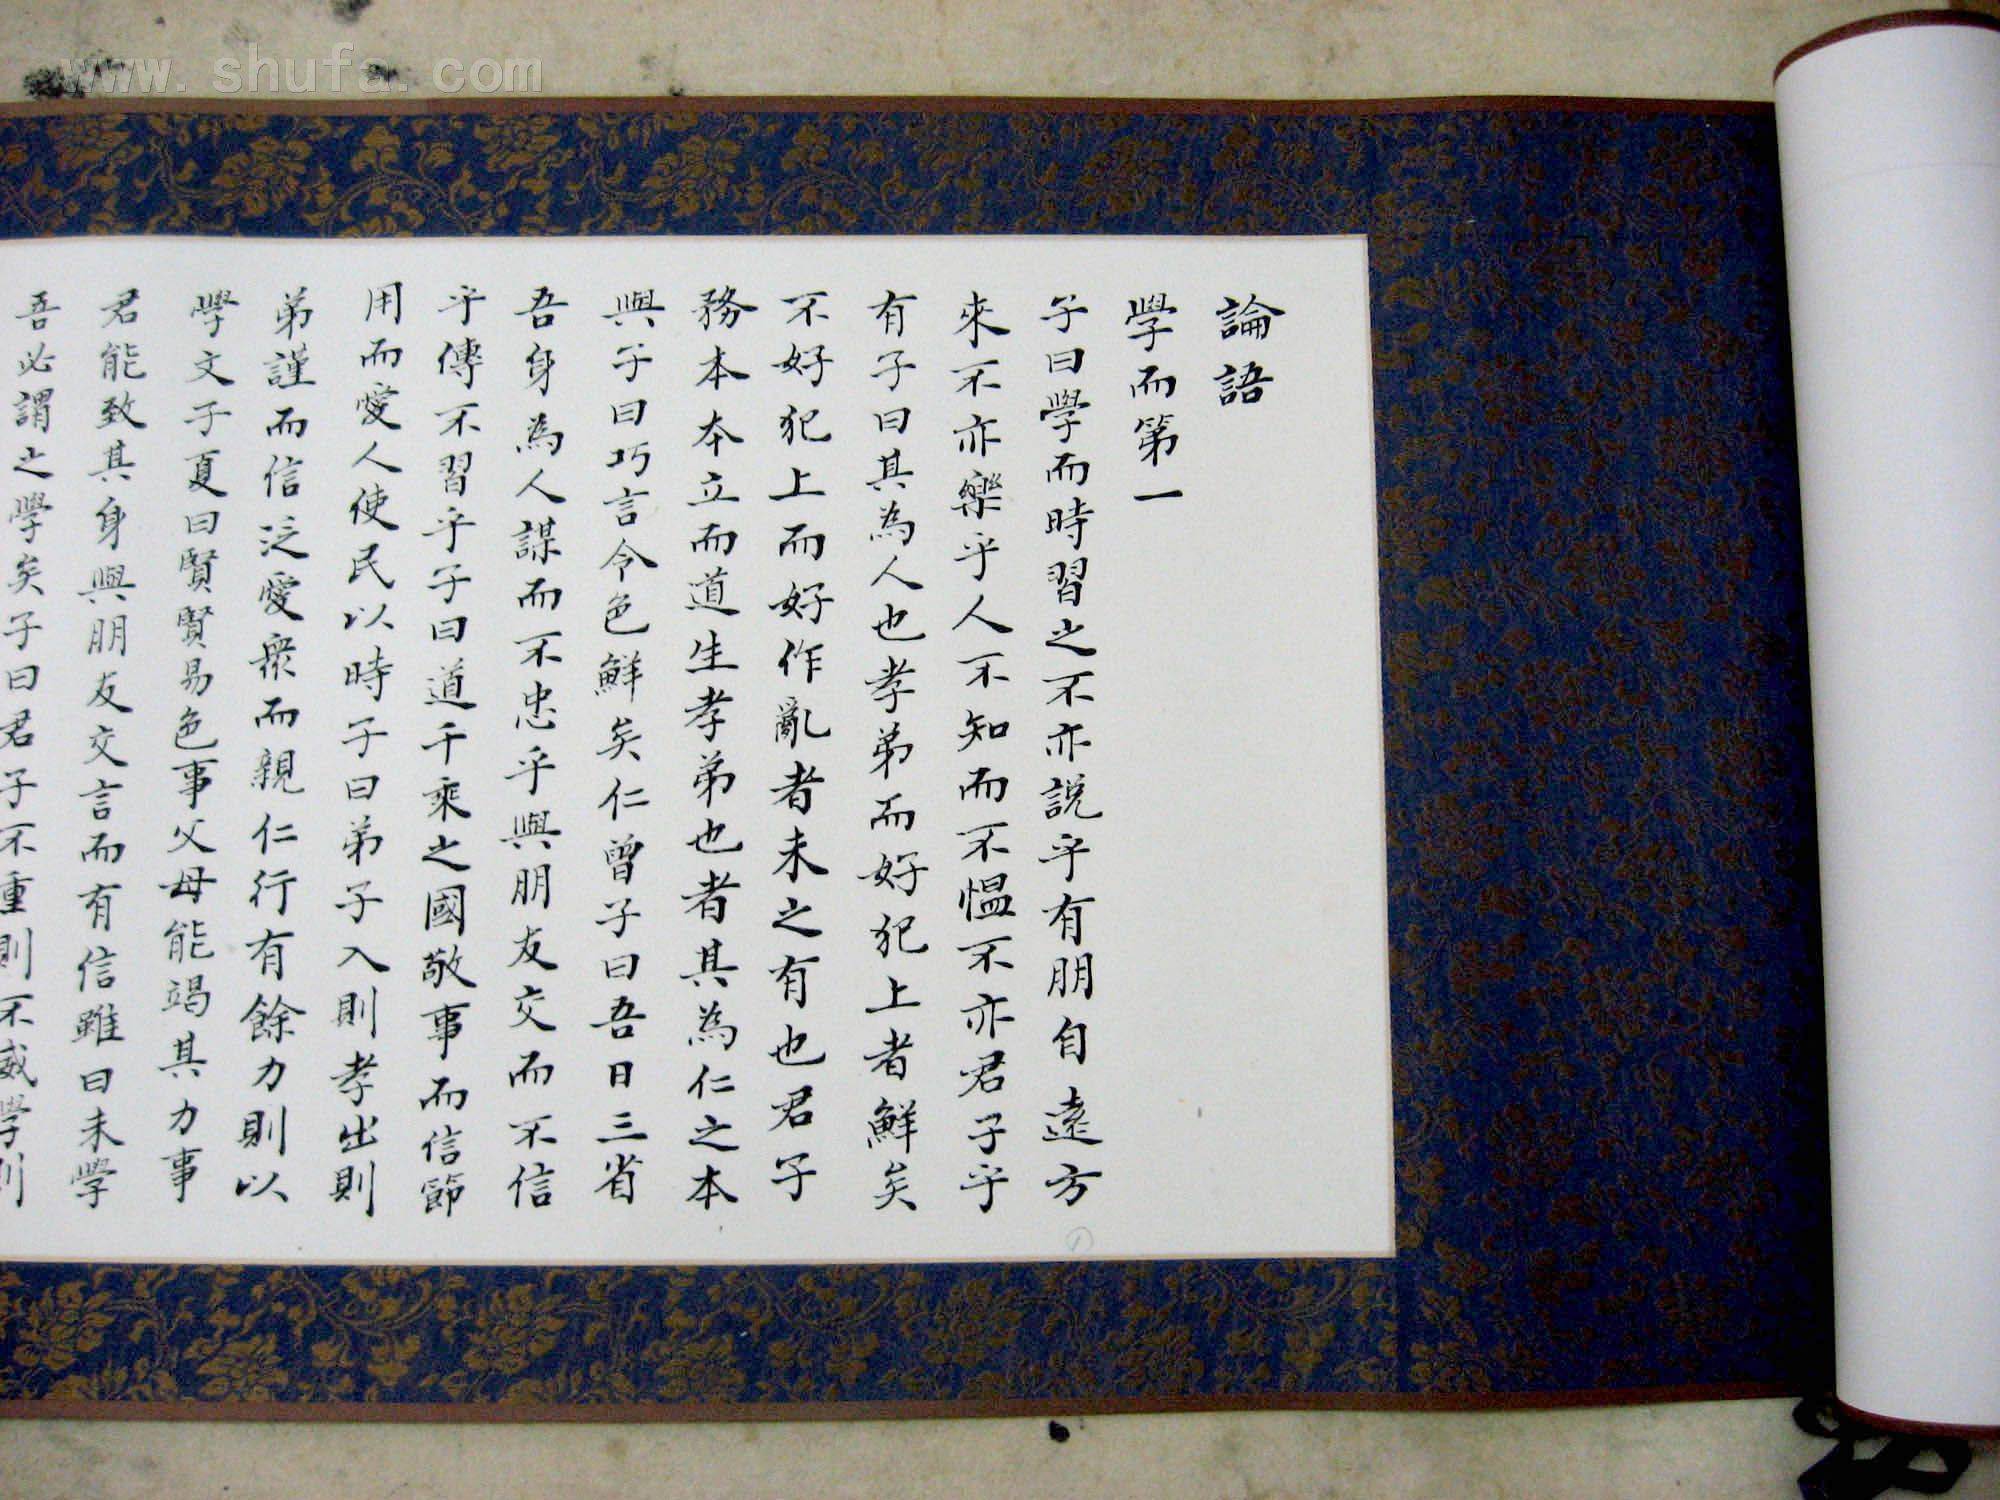 www.shufa.com
論語
學而第一
子曰學而時習之不亦説乎有朋自遠方
來不亦樂乎人不知而不愠不亦君子乎
有子曰其為人也孝弟而好犯上者鮮矣
不好犯上而好作亂者未之有也君子
務本本立而道生孝弟也者其為仁之本
與子曰巧言令色鮮矣仁曾子曰吾日三省
吾身為人謀而不忠乎與朋友交而不信
乎傳不習乎子曰道千乘之國敬事而信節
用而愛人使民以時子曰弟子入則孝出則
弟謹而信泛愛衆而親仁行有餘力則以
學文子夏曰賢賢易色事父母能竭其力事
君能致其身與朋友交言而有信雖曰未學
吾必謂之學矣子曰君子不重則不威學則